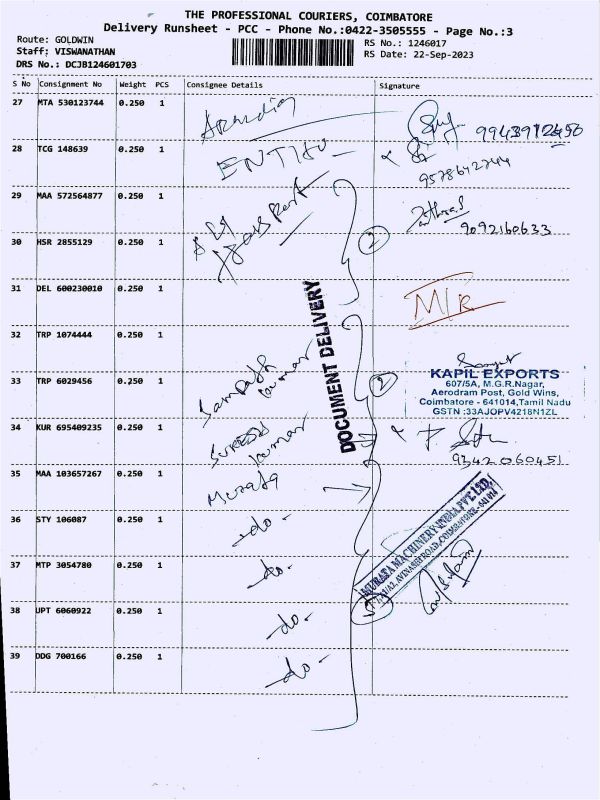 THE PROFESSIONAL COURIERS, COIMBATORE
Delivery Runsheet - PCC - Phone No.:0422-3505555 - Page No.:3
Route: GOLDWIN
Staff; VISWANATHAN
DRS No.: DCJB124601703
RS No.: 1246017
RS Date: 22-Sep-2023
S No Consignment No Weight PCS Consignee Details Signature
27 MTA 530123744 0.250 1
28 TCG 148639 0.250 1
9578642744
29 MAA 572564877 0.250 1
9092160633
30 HSR 2855129 0.250 1 2
31 DEL 600230010 0.250 1 M/R
DOCUMENT DELIVERY
32 TRP 1074444 0.250 1
33 TRP 6029456 0.250 1 Sampath Kumar 2
KAPIL EXPORTS
607/5A, M.G.R.Nagar,
Aerodram Post, Gold Wins,
Coimbatore - 641014,Tamil Nadu
GSTN :33AJOPV4218N1ZL
34 KUR 695409235 0.250 1 Suresh Kumar
9342060451
35 MAA 103657267 0.250 1 Murata
36 STY 106087 0.250 1 -do-
MURATA MACHINERY INDIA PVT. LTD.
AVINASHI ROAD, COIMBATORE - 641 014
37 MTP 3054780 0.250 1 -do-
38 UPT 6060922 0.250 1 -do- 5
39 DDG 700166 0.250 1 -do-